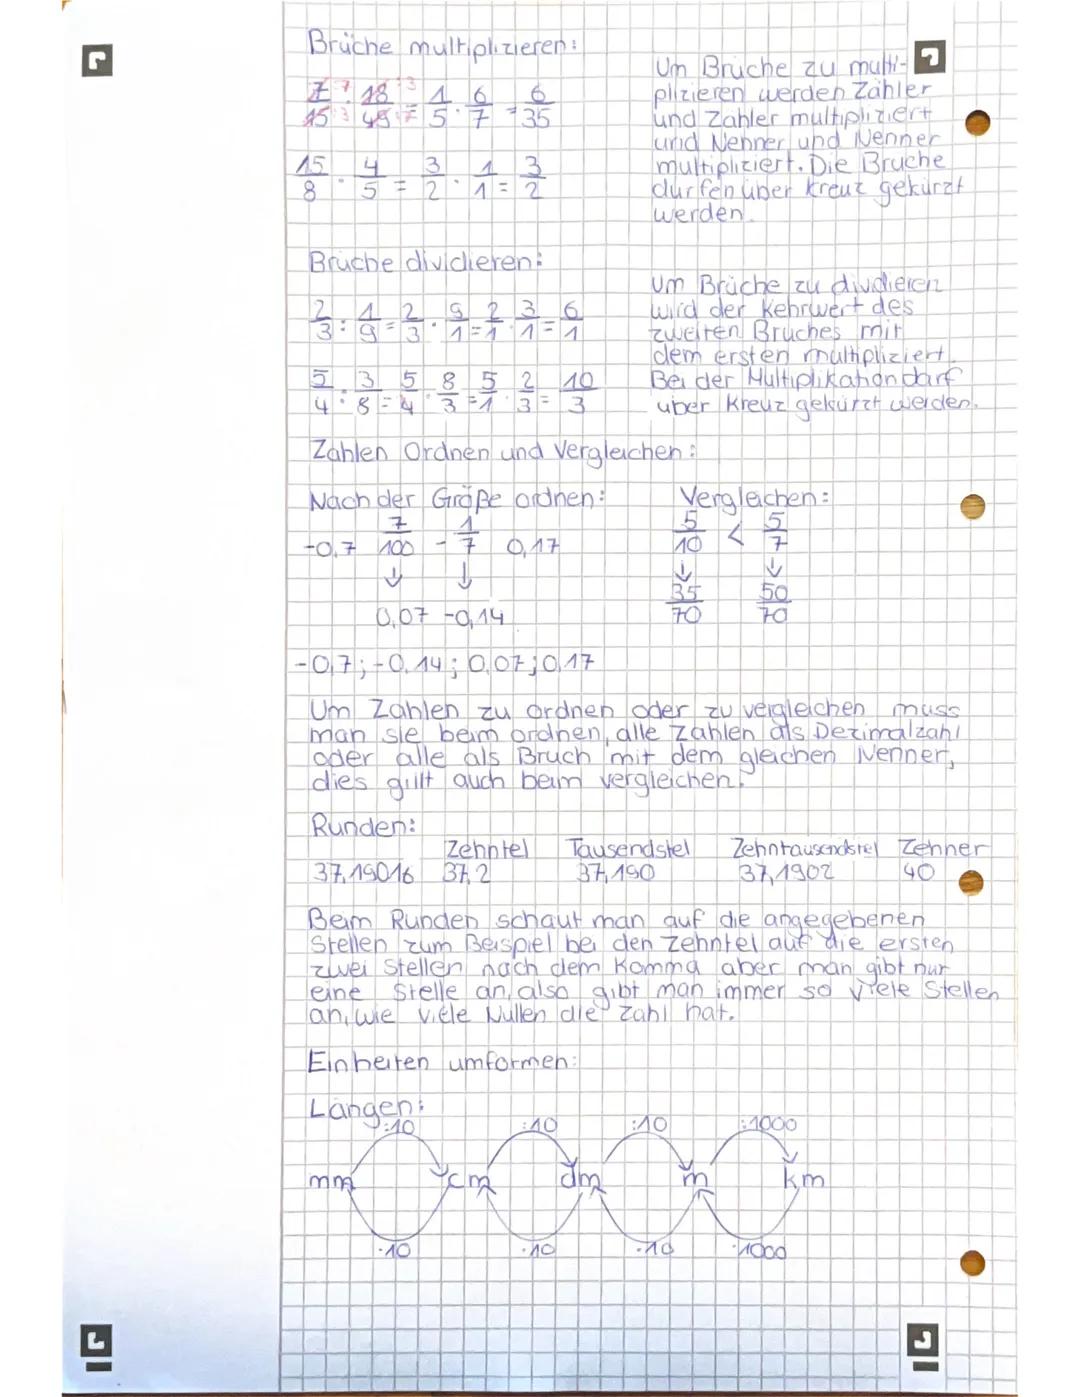 Brüche multiplizieren:
7/15 · 18/49 = 1/5 · 6/7 = 6/35
15/8 · 4/5 = 3/2 · 1/1 = 3/2
Um Brüche zu multi-
plizieren werden Zähler
und Zähler multipliziert
und Nenner und Nenner
multipliziert. Die Brüche
dürfen über kreuz gekürzt
werden.
Brüche dividieren:
2/3 : 1/9 = 2/3 · 9/1 = 2/1 · 3/1 = 6/1
5/4 : 3/8 = 5/4 · 8/3 = 5/1 · 2/3 = 10/3
Um Brüche zu dividieren
wird der Kehrwert des
zweiten Bruches mit
dem ersten multipliziert.
Bei der Multiplikation darf
über Kreuz gekürzt werden.
Zahlen Ordnen und Vergleichen:
Nach der Größe ordnen:
-0,7 7/100 -1/7 0,17
↓ ↓
0,07 -0,14
-0,7; -0,14; 0,07; 0,17
Vergleichen:
5/10 < 5/7
↓ ↓
35/70 50/70
Um Zahlen zu ordnen oder zu vergleichen muss
man sie beim ordnen, alle Zahlen als Dezimalzahl
oder alle als Bruch mit dem gleichen Nenner,
dies gillt auch beim vergleichen.
Runden:
Zehntel Tausendstel Zehntausendstel Zehner
37,19016 37,2 37,190 37,1902 40
Beim Runden schaut man auf die angegebenen
Stellen zum Beispiel bei den Zehntel auf die ersten
zwei Stellen nach dem Komma aber man gibt nur
eine Stelle an, also gibt man immer so viele Stellen
an, wie viele Nullen die Zahl hat.
Einheiten umformen:
Längen:
:10 :10 :10 :1000
mm cm dm m km
·10 ·10 ·10 ·1000